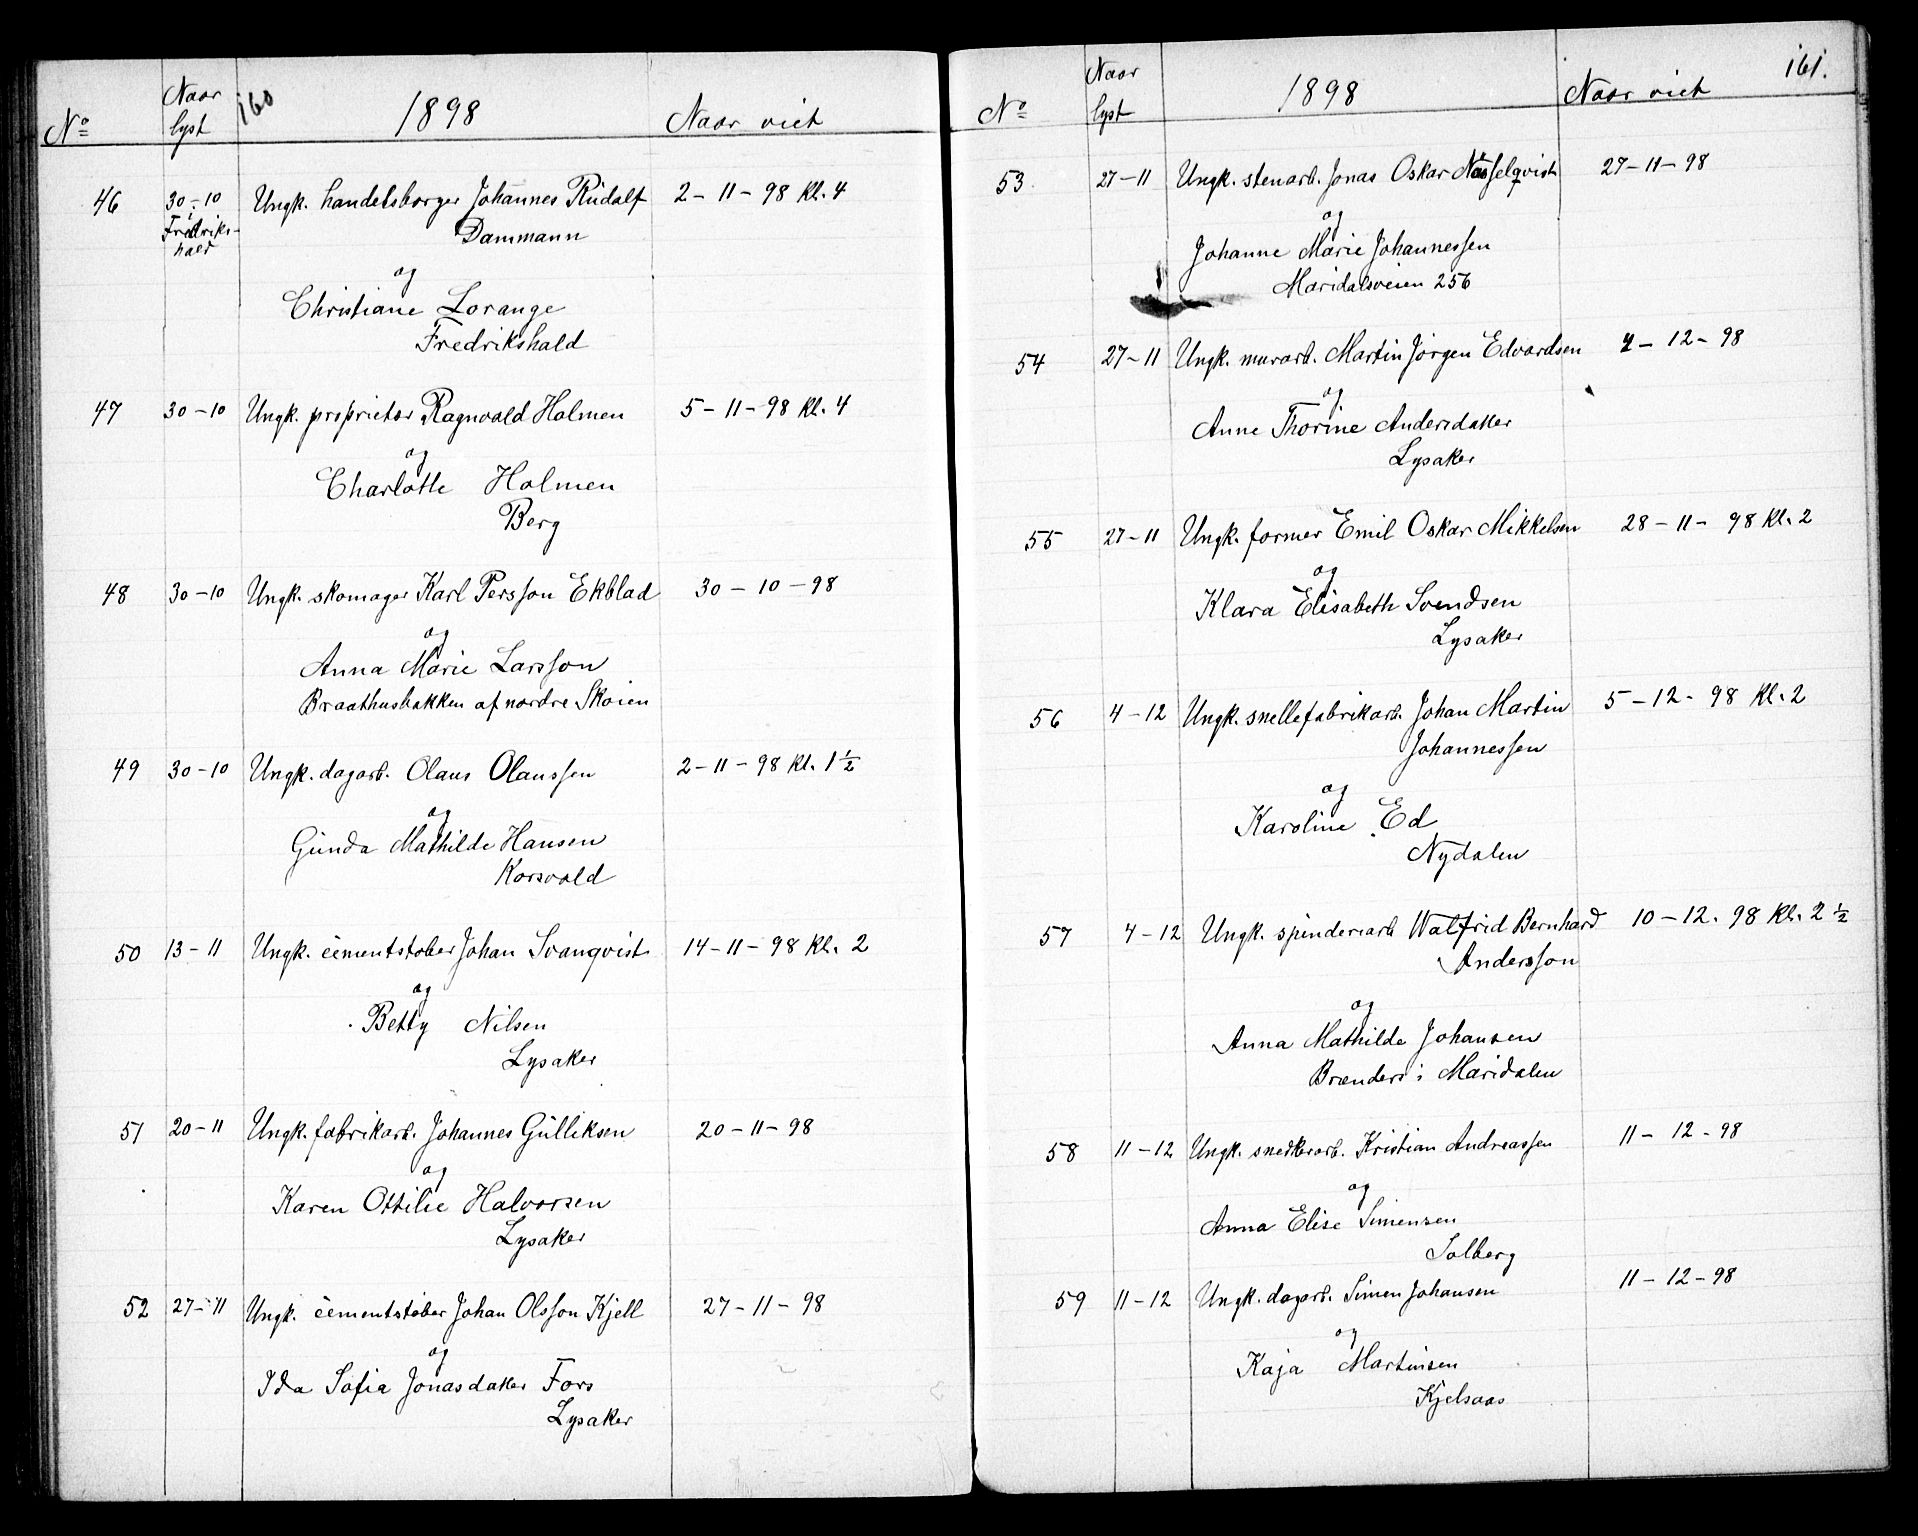 160
No
Naar lyst
1898
Naar viet
46 30-10 Ungk. handelsborger Johannes Rudolf 2-11-98 Kl. 4
i Fredriks-
hald
Dammann
og
Christiane Lorange
Fredrikshald
47 30-10 Ungk. proprietær Ragnvald Holmen 5-11-98 Kl. 4
og
Charlotte Holmen
Berg
48 30-10 Ungk. skomager Karl Persson Ekblad 30-10-98
og
Anna Marie Larsson
Braathusbakken af nordre Skøien
49 30-10 Ungk. dagarb. Olaus Olaussen 2-11-98 Kl. 1½
og
Gunda Mathilde Hansen
Korsvold
50 13-11 Ungk. cementstøber Johan Svanqvist 14-11-98 Kl. 2
og
Betty Nilsen
Lysaker
51 20-11 Ungk. fabrikarb. Johannes Gulliksen 20-11-98
og
Karen Ottilie Halvorsen
Lysaker
52 27-11 Ungk. cementstøber Johan Olsson Kjell 27-11-98
og
Ida Sofia Jonasdaker Fors
Lysaker
161.
No
Naar lyst
1898
Naar viet
53 27-11 Ungk. stenarb. Jonas Oskar 27-11-98
og
Johanne Marie Johannessen
Maridalsveien 256
54 27-11 Ungk. murarb. Martin Jørgen Edvardsen 4-12-98
og
Anne Thorine Andersdaker
Lysaker
55 27-11 Ungk. former Emil Oskar Mikkelsen 28-11-98 Kl. 2
og
Klara Elisabeth Svendsen
Lysaker
56 4-12 Ungk. snellefabrikarb. Johan Martin 5-12-98 Kl. 2
Johannessen
og
Karoline Ed
Nydalen
57 4-12 Ungk. spinderiarb Walfrid Bernhard 10-12-98 Kl. 2½
Andersson
og
Anna Mathilde Johansen
Brænderi i Maridalen
58 11-12 Ungk. snedkerarb. Kristian Andreassen 11-12-98
og
Anna Elise Simensen
Solberg
59 11-12 Ungk. dagarb. Simen Johansen 11-12-98
og
Kaja Martinsen
Kjelsaas